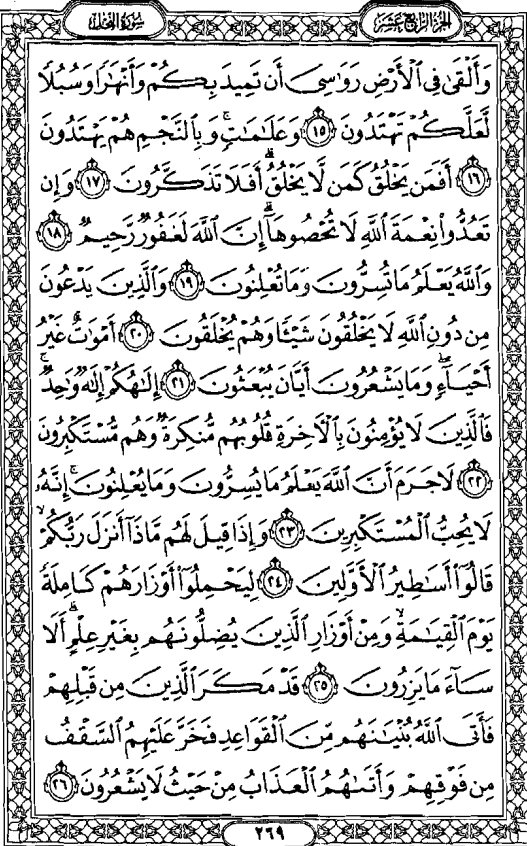 الجزء الرابع عشر
سورة النحل
وَأَلْقَىٰ فِى ٱلْأَرْضِ رَوَٰسِىَ أَن تَمِيدَ بِكُمْ وَأَنْهَٰرًا وَسُبُلًا
لَّعَلَّكُمْ تَهْتَدُونَ ١٥ وَعَلَٰمَٰتٍۚ وَبِٱلنَّجْمِ هُمْ يَهْتَدُونَ
١٦ أَفَمَن يَخْلُقُ كَمَن لَّا يَخْلُقُۗ أَفَلَا تَذَكَّرُونَ ١٧ وَإِن
تَعُدُّوا۟ نِعْمَةَ ٱللَّهِ لَا تُحْصُوهَآۗ إِنَّ ٱللَّهَ لَغَفُورٌ رَّحِيمٌ ١٨
وَٱللَّهُ يَعْلَمُ مَا تُسِرُّونَ وَمَا تُعْلِنُونَ ١٩ وَٱلَّذِينَ يَدْعُونَ
مِن دُونِ ٱللَّهِ لَا يَخْلُقُونَ شَيْـًٔا وَهُمْ يُخْلَقُونَ ٢٠ أَمْوَٰتٌ غَيْرُ
أَحْيَآءٍۖ وَمَا يَشْعُرُونَ أَيَّانَ يُبْعَثُونَ ٢١ إِلَٰهُكُمْ إِلَٰهٌ وَٰحِدٌۚ
فَٱلَّذِينَ لَا يُؤْمِنُونَ بِٱلْـَٔاخِرَةِ قُلُوبُهُم مُّنكِرَةٌ وَهُم مُّسْتَكْبِرُونَ
٢٢ لَا جَرَمَ أَنَّ ٱللَّهَ يَعْلَمُ مَا يُسِرُّونَ وَمَا يُعْلِنُونَۚ إِنَّهُۥ
لَا يُحِبُّ ٱلْمُسْتَكْبِرِينَ ٢٣ وَإِذَا قِيلَ لَهُم مَّاذَآ أَنزَلَ رَبُّكُمْۙ
قَالُوٓا۟ أَسَٰطِيرُ ٱلْأَوَّلِينَ ٢٤ لِيَحْمِلُوٓا۟ أَوْزَارَهُمْ كَامِلَةً
يَوْمَ ٱلْقِيَٰمَةِۙ وَمِنْ أَوْزَارِ ٱلَّذِينَ يُضِلُّونَهُم بِغَيْرِ عِلْمٍۗ أَلَا
سَآءَ مَا يَزِرُونَ ٢٥ قَدْ مَكَرَ ٱلَّذِينَ مِن قَبْلِهِمْ
فَأَتَى ٱللَّهُ بُنْيَٰنَهُم مِّنَ ٱلْقَوَاعِدِ فَخَرَّ عَلَيْهِمُ ٱلسَّقْفُ
مِن فَوْقِهِمْ وَأَتَىٰهُمُ ٱلْعَذَابُ مِنْ حَيْثُ لَا يَشْعُرُونَ ٢٦
٢٦٩